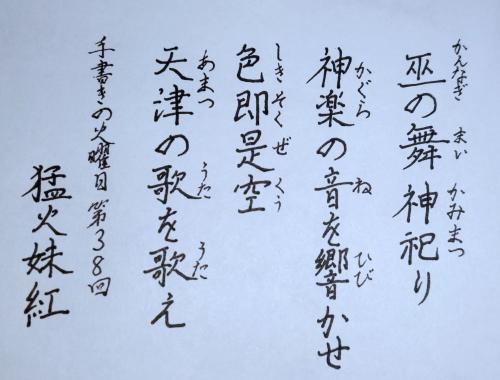 かんなぎ まい かみまつ
巫の舞 神祀り
かぐら ね ひび
神楽の音を響かせ
しき そく ぜ くう
色即是空
あまつ うた うた
天津の歌を歌え
手書きの火曜日 第38回
猛火妹紅